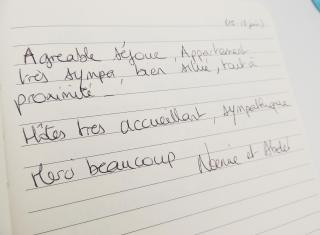 (15-17 juin)
Agréable séjour, Appartement
très sympa, bien situé, tout à
proximité -
Hôtes très accueillant, sympathique
Merci beaucoup Noémie et Abdel